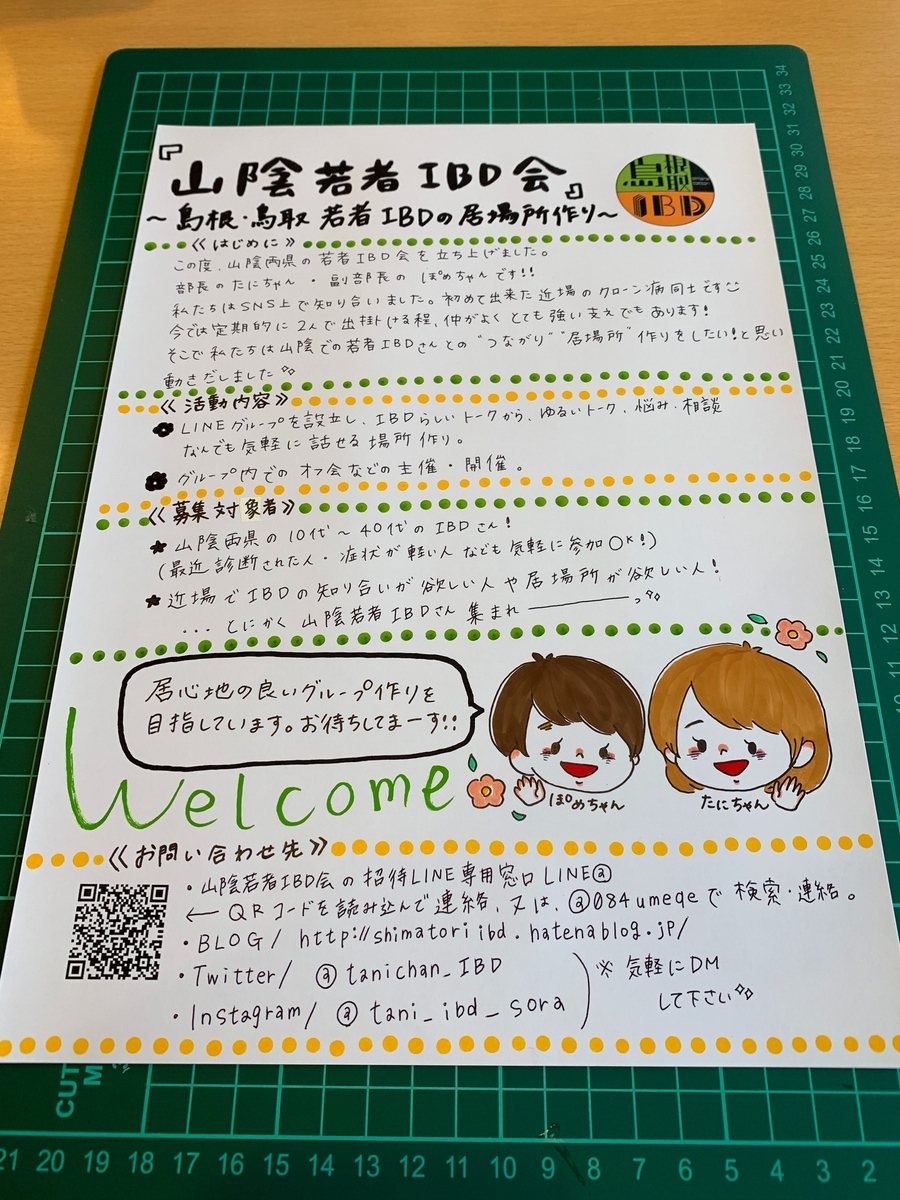 『山陰若者IBD会』
～島根・鳥取 若者IBDの居場所作り～
島根
鳥取
IBD
《はじめに》
この度、山陰両県の若者IBD会を立ち上げました。
部長のたにちゃん・副部長の ぽめちゃんです!!
私たちはSNS上で知り合いました。初めて出来た近場のクローン病同士です
今では定期的に2人で出掛ける程、仲がよくとても強い支えでもあります!
そこで私たちは山陰での若者IBDさんとの"つながり""居場所"作りをしたい!と思い
動きだしました
《活動内容》
LINEグループを設立し、IBDらしいトークから、ゆるいトーク、悩み・相談
なんでも気軽に話せる場所作り。
グループ内でのオフ会などの主催・開催。
《募集対象者》
★ 山陰両県の10代～40代のIBDさん!
(最近診断された人・症状が軽い人なども気軽に参加OK!)
★ 近場でIBDの知り合いが欲しい人や居場所が欲しい人!
... とにかく山陰若者IBDさん 集まれ―――っ
居心地の良いグループ作りを
目指しています。お待ちしてまーす!!
Welcome
ぽめちゃん
たにちゃん
《お問い合わせ先》
・山陰若者IBD会の招待LINE専用窓口LINE@
← QRコードを読み込んで連絡、又は、@084umeqeで検索・連絡。
・BLOG/ http://shimatoriibd.hatenablog.jp/
・Twitter/ @tanichan_IBD
・Instagram/ @tani_ibd_sora
※気軽にDM
して下さい
CUT
M
34
33
32
31
30
29
28
27
26
25
24
23
22
21
20
19
18
17
16
15
14
13
12
11
10
21 20 19 18 17 16 15 14 13 12 11 10 9 8 7 6 5 4 3 2